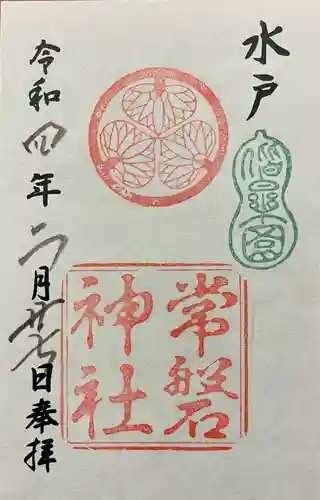 水戸
偕楽園
常磐
神社
令和四年二月廿七日奉拝